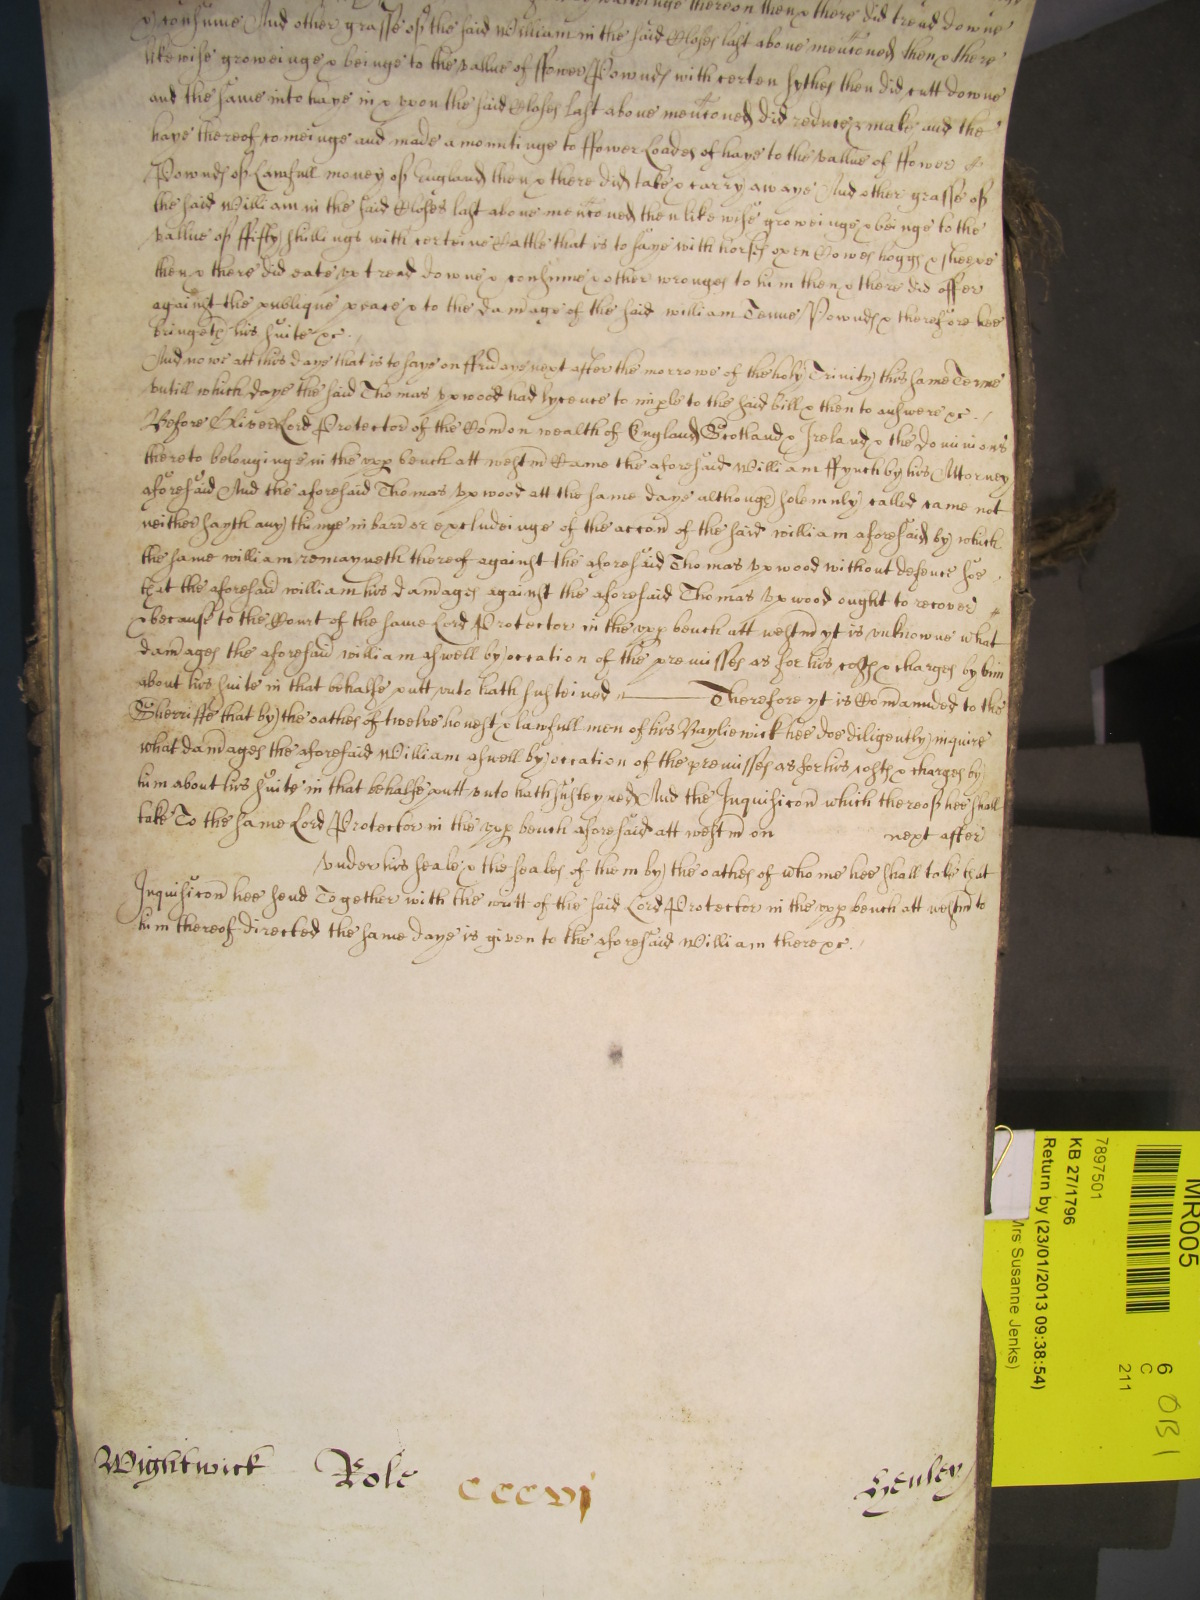 thereon then & there did tread downe
& consume And other grasse of the said William in the said Closes last above menconed then & there
likewise groweinge & beinge to the vallue of ffower Pownds with certen sythes then did cutt downe
and the same into haye in & vpon the said Closes last above menconed did reduce & make and the
haye thereof comeinge and made amountinge to ffower Loades of haye to the vallue of ffower
Pownds of Lawfull money of England then & there did take & carry awaye And other grasse of
the said William in the said Closes last above menconed then likewise groweinge & beinge to the
vallue of ffifty shillings with certeine Cattle that is to saye with horses oxen Cowes hoggs & sheepe
then & there did eate vp tread downe & consume & other wronges to him then & there did offer
against the publique peace & to the damage of the said William Tenne Pownds & therefore hee
bringeth his suite &c.
And nowe att this daye that is to saye on ffridaye next after the morrowe of the holy Trinity this same Terme
vntill which daye the said Thomas Vpwood had lycence to imple to the said bill & then to answere &c.
Before Oliver Lord Protector of the Comon wealth of England Scotland & Ireland & the dominions
thereto belonginge in the vpp bench att westm Came the aforesaid William ffynch by his Attorney
aforesaid And the aforesaid Thomas Vpwood att the same daye although solemnly called came not
neither sayth any thinge in barr or excludeinge of the accon of the said William aforesaid by which
the same William remayneth thereof against the aforesaid Thomas Vpwood without defence Soe
that the aforesaid William his damages against the aforesaid Thomas Vpwood ought to recover
& because to the Court of the same Lord Protector in the vpp bench att westm yt is vnknowne what
damages the aforesaid William aswell by occation of the premisses as for his costs & charges by him
about his suite in that behalfe putt vnto hath susteined Therefore yt is Comanded to the
Sherriffe that by the oathes of twelve honest & lawfull men of his Bayliewick hee doe diligently inquire
what damages the aforesaid William aswell by occation of the premisses as for his costs & charges by
him about his suite in that behalfe putt vnto hath susteyned And the Inquisicon which thereof hee shall
take To the same Lord Protector in the vpp bench aforesaid att westm on next after
vnder his seale & the seales of them by the oathes of whome hee shall take that
Inquisicon hee send Together with the writt of the said Lord Protector in the vpp bench att westm to
him thereof directed the same daye is given to the aforesaid William there &c.
Wightwick Role cccvj Henley
MR005
7897501
KB 27/1796
Return by (23/01/2013 09:38:54)
Mrs Susanne Jenks)
6
C
211
OB1